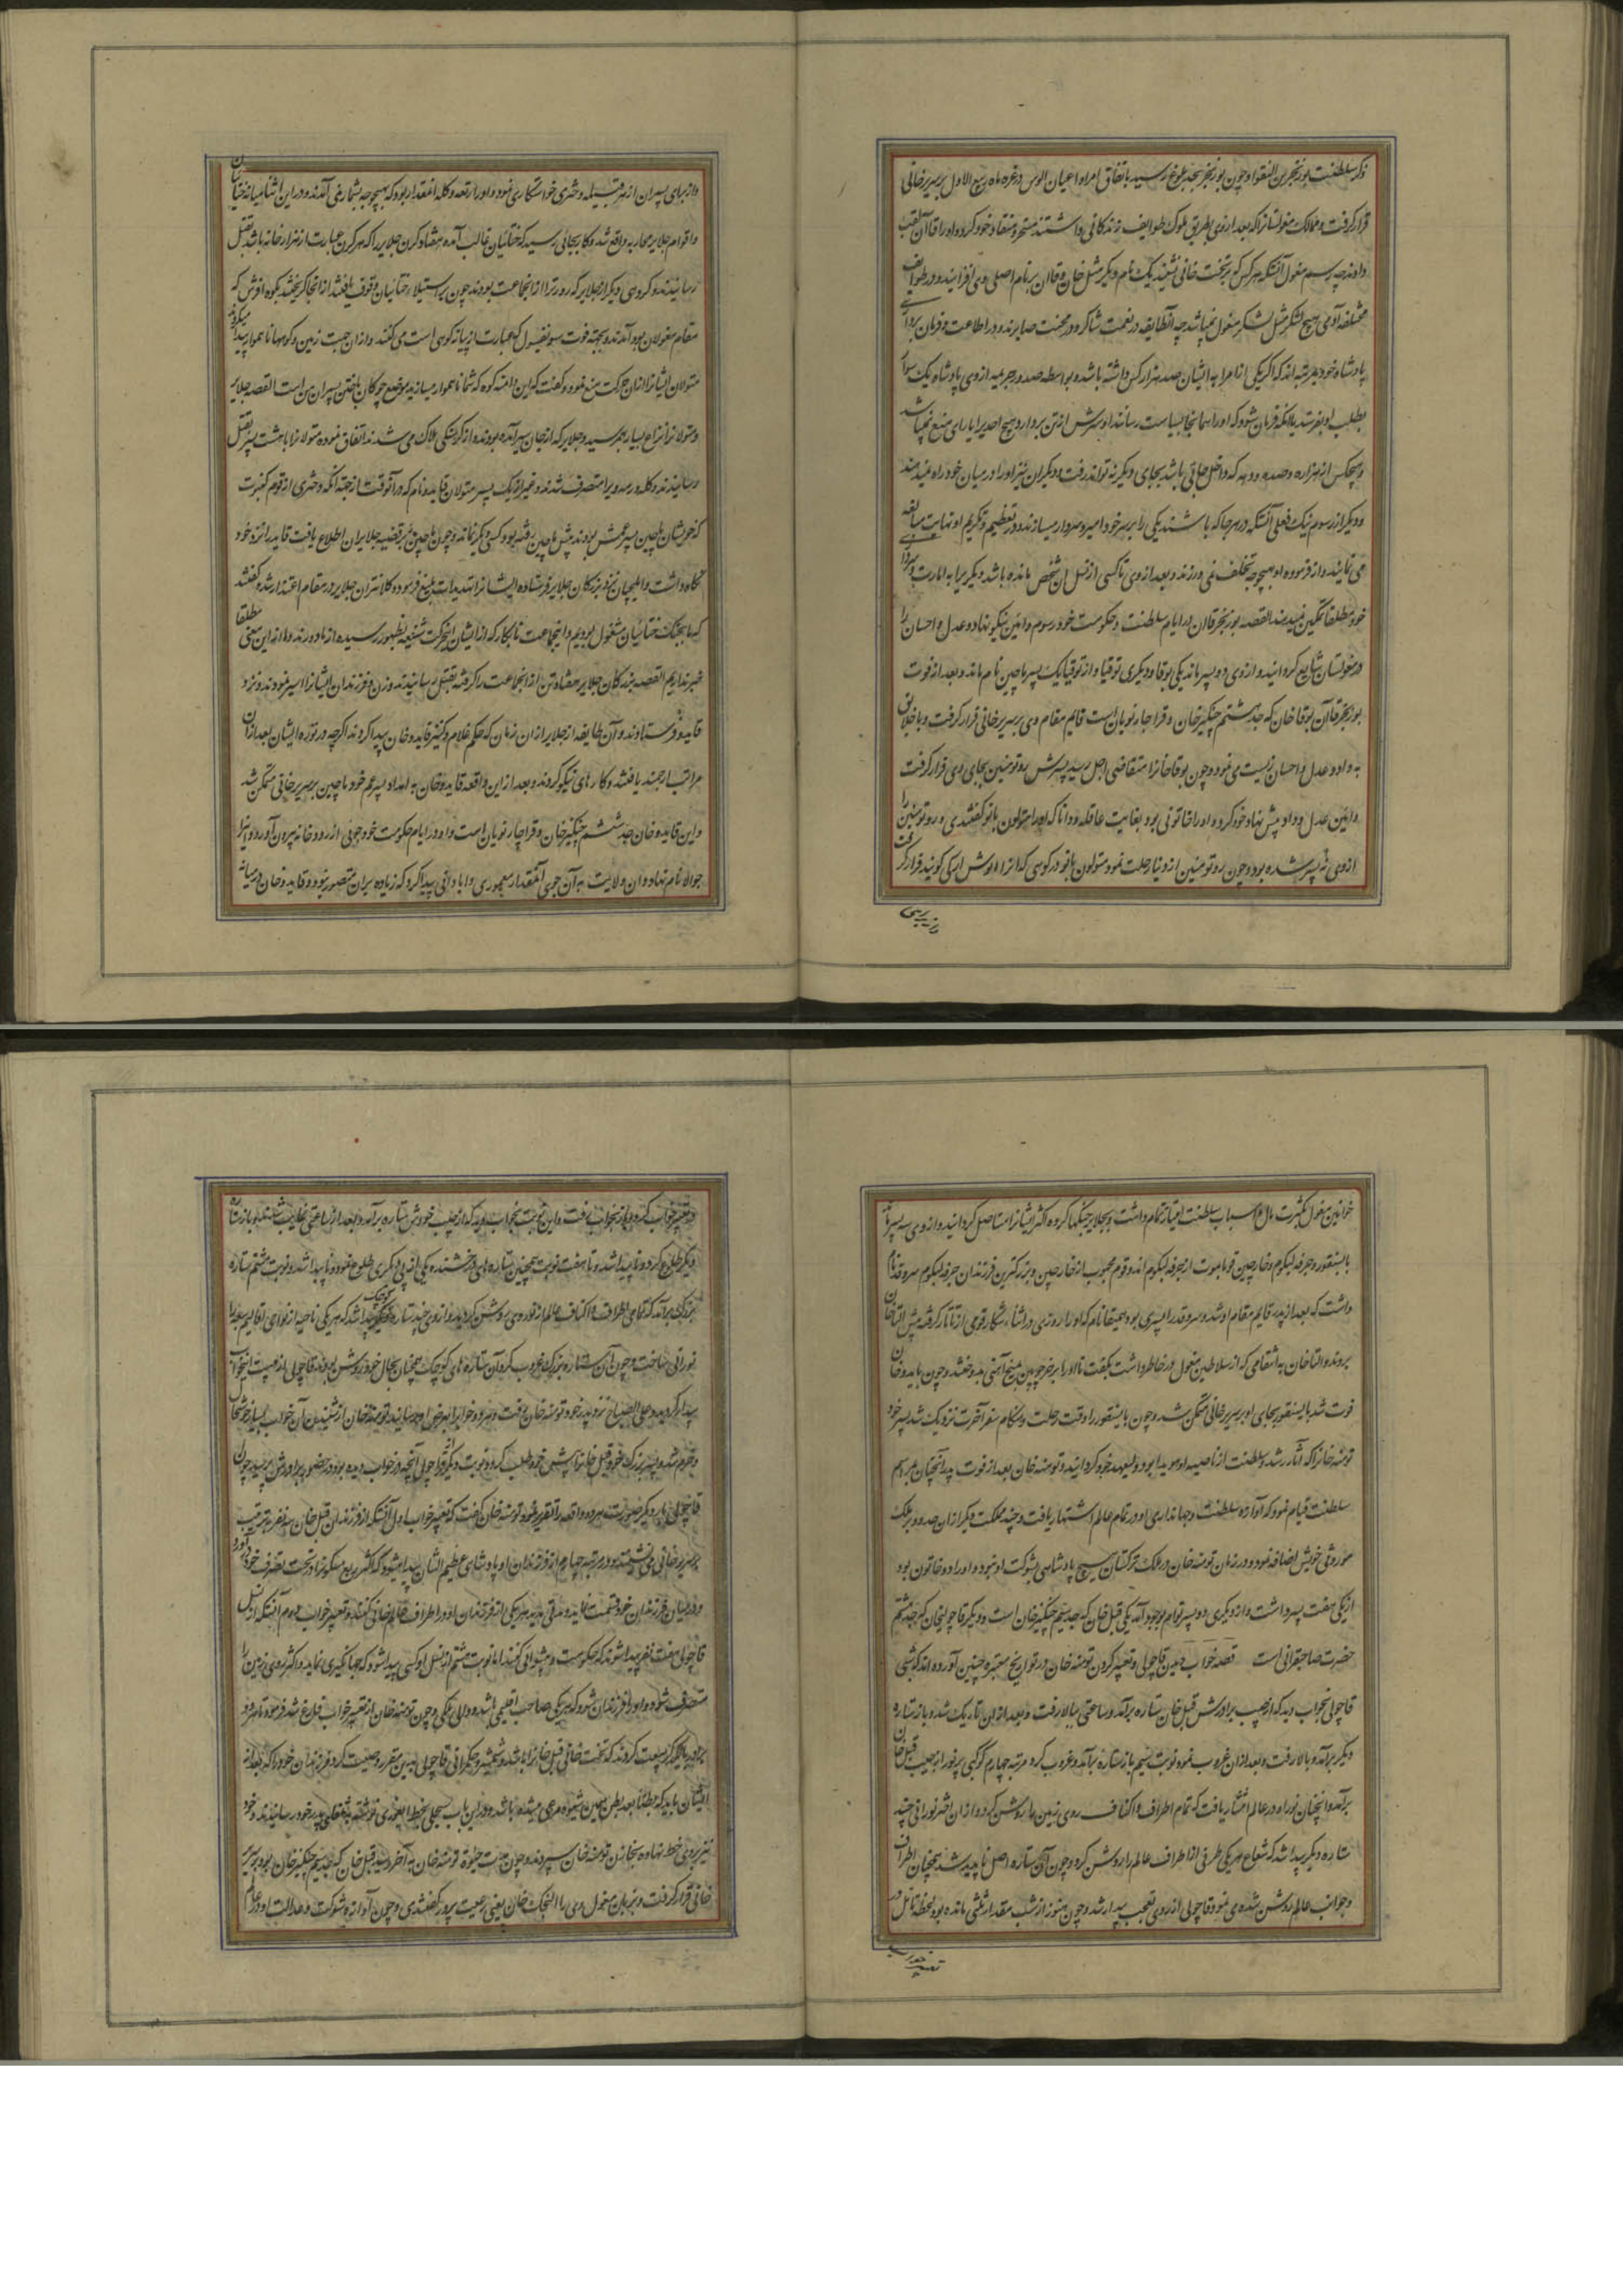 ذکر سلطنت بوزنجر بن النقوا و چون بوزنجر بحد بلوغ رسید باتفاق امرا و اعیان الوس در غره ماه ربیع الاول بر سریر خانی
قرار گرفت و ممالک مغولستانرا که بعد از وی بطریق ملوک طوایف زندگانی داشتند مسخر و منقاد خود کرد و او را قاآن لقب
دادند چه رسم مغول آنستکه هر کس که بر تخت خانی نشیند یک نام دیگر مثل خان و قاآن بر نام اصلی وی افزایند و در طوایف
مختلفه آدمی هیچ لشکر مثل لشکر مغول نمیباشد چه آنطایفه در نعمت شاکر و در محنت صابرند و در اطاعت و فرمان برداری
پادشاه خود بمرتبه اند که اگر یکی از امرا به ایشان صد هزار کس داشته باشد و بواسطه صدور جریمه از وی پادشاه یک سوار
بطلب او بفرستد یا آنکه فرمان شود که او را همانجا بسیاست رسانند او سرش از تن بردارد و هیچ احدیرا یارای منع نمیباشد
و هیچکس از هزاره و صده و دهه که داخل جائی باشد بجای دیگر نه تواند رفت و دیگران نیز او را در میان خود راه نمیدهند
و دیگر از رسوم نیک فعلی آنستکه در هر جا که باشند یکی را بر سر خود امیر و سردار میسازند و در تعظیم و تکریم او نهایت مبالغه
می نمایند و از فرموده او بهیچوجه تخلف نمی ورزند و بعد از وی تا کسی از نسل ان شخص مانده باشد دیگریرا به امارت و سرداری
خود مطلقا تمکین نمیدهند القصه بوزنجر قاان در ایام سلطنت و حکومت خود رسوم و ائین نیکو نهاد و عدل و احسان را
در مغولستان شایع گردانید و از وی دو پسر ماند یکی بوقا و دیگری توقیا و از توقیا یک پسر ماچین نام ماند و بعد از فوت
بوزنجر قاآن بوقا خان که جد هشتم چنگیز خان و قراجار نویان است قایم مقام وی بر سریر خانی قرار گرفت و با خلائق
به داد و عدل و احسان زیست می نمود و چون بوقا خانرا متقاضی اجل رسید پسرش دوتومنین بجای وی قرار گرفت
و ائین عدل و داد پیش نهاد خود کرد و او را خاتونی بود بغایت عاقله و دانا که او را متولون بانو گفتندی و دوتومنین را
از وی نه پسر شده بود و چون دوتومنین از دنیا رحلت نمود متولون بانو در کوهی که انرا الوش ارکی گویند قرار گرفت
و از برای پسران از هر قبیله دختری خواستگاری نمود و او را رمه و گله انمقدار بود که بهیچوجه بشمار نمی آمدند و در این اثنا میانه ختائیان
و اقوام جلایر محاربه واقع شد و کار بجائی رسید که ختائیان غالب آمده هفتاد کرن جلایر را که هر کرن عبارت از هزار خانه باشد بقتل
رسانیدند و گروهی دیگر از جلایر که دورتر از انجماعت بودند چون بر استیلاء ختائیان وقوف یافتند از انجا گریخته بکوه الوش که
مقام مغولان بود آمدند و بجهت قوت سونقیسول که عبارت از پیاز کوهی است می کندند و از ان جهت زمین و کوه نا هموار میگردید
متولان ایشانرا از ان حرکت منع نمود و گفت که این دامنه کوه که شما نا هموار میسازید موضع چوگان باختن پسران من است القصه جلایر
و متولانرا نزاع بسیار بهم رسید و جلایر که از جان سیر آمده بودند و از گرسنگی هلاک می شدند اتفاق نموده متولانرا با هشت پسر بقتل
رسانیدند و گله و رمه ویرا متصرف شدند و غیر از یک پسر متولان قایدو نام که در آنوقت از جهة انکه دختری از قوم کنبوت
که خویشان ماچین پسر عمش بودند پیش ماچین رفته بود کسی دیگر نماند و چون ماچین بر قضیه جلایران اطلاع یافت قایدو را نزد خود
نگاه داشت و ایلچیان نزد بزرگان جلایر فرستاده ایشانرا تهدیدات بلیغ فرموده کلانتران جلایر در مقام اعتذار شده گفتند
که ما بجنگ ختائیان مشغول بودیم و اینجماعت نابکار که از ایشان اینحرکت شنیعه بظهور رسیده از ما دورند و ما از این معنی مطلقا
خبر نداریم القصه بزرگان جلایر هفتاد تن از انجماعت را گرفته بقتل رسانیدند و زن و فرزندان ایشانرا اسیر نموده نزد
قایدو فرستادند و آن طایفه از جلایر از ان زمان که حکم غلام و کنیز قایدو خان پیدا کردند اگرچه در توره ایشان بعد از ان
مراتب ارجمند یافتند و کارهای نیکو کردند و بعد از این واقعه قایدو خان به امداد پسر عم خود ماچین بر سریر خانی متمکن شد
و این قایدو خان جد ششم چنگیز خان و قراجار نویان است و او در ایام حکومت خود جوئی از رودخانه بیرون آورد و انرا
جوالاغ نام نهاد و ان ولایت به آن جوی آنمقدار معموری و ابادانی پیدا کرد که زیاده بر ان متصور نبود و قایدو خان در میانه
خوانین مغول بکثرت مال و اسباب سلطنت امتیاز تمام داشت و بجلایر جنگها کرده اکثر ایشانرا مستاصل گردانید و از وی سه پسر ماند
بایسنقور و جرقه لیکوم و خارچین قوم تایجوت از جرقه لیکوم اند و قوم سجیوت از خارچین و بزرگترین فرزندان جرقه لیکوم سورقد نام
داشت که بعد از پدر قایم مقام او شد و سورقد را پسری بود همبقا نام که او را روزی در اثناء شکار قومی از تاتار گرفته پیش التا خان
بردند و التا خان به انتقامی که از سلاطین مغول در خاطر داشت بگفت تا او را بر خر چوبین بمیخ آهنی بدوختند و چون قایدو خان
فوت شد بایسنقور بجای او بر سریر خانی متمکن شد و چون بایسنقور را وقت رحلت و هنگام سفر آخرت نزدیک شد پسر خود
تومنه خانرا که آثار رشد و سلطنت از ناصیه او هویدا بود ولیعهد خود گردانید و تومنه خان بعد از فوت پدر آنچنان بمراسم
سلطنت قیام نمود که آوازه سلطنت و جهانداری او در تمام عالم اشتهار یافت و چند مملکت دیگر از ان حدود بر ملک
موروثی خویش اضافه نمود و در زمان تومنه خان در ملک ترکستان هیچ پادشاهی بشوکت او نبود و او را دو خاتون بود
از یکی هفت پسر داشت و از دیگری دو پسر توام بوجود آمد یکی قبل خان که جد سیم چنگیز خان است و دیگر قاچولیخان که جد هشتم
حضرت صاحبقرانی است قصه خواب دیدن قاچولی و تعبیر کردن تومنه خان در تواریخ معتبره چنین آورده اند که شبی
قاچولی بخواب دید که از جیب برادرش قبل خان ستاره برآمد و ساعتی ببالا رفت و بعد از ان تاریک شد و باز ستاره
دیگر برآمد و بالا رفت و بعد از ان غروب نمود نوبت سیم باز ستاره برآمد و غروب کرد مرتبه چهارم کوکبی پر نور از جیب قبل خان
برآمد و انچنان نور او در عالم انتشار یافت که تمام اطراف و اکناف روی زمین را روشن کرد و از ان اختر نورانی چند
ستاره دیگر پیدا شد که شعاع هر یکی طرفی از اطراف عالم را روشن کرد و چون آن ستاره اصل ناپدید شد همچنان اطراف
و جوانب عالم روشن شده می نمود قاچولی از روی تعجب بیدار شد و چون هنوز از شب مقدار ثلثی مانده بود لحظه تامل در
تعبیر خواب کرد و باز بخواب رفت و این نوبت بخواب دید که از جیب خودش ستاره برآمد و بعد از ساعتی غایب شد و باز ستاره
دیگر طلوع کرد و ناپیدا شد و تا هفت نوبت همچنین ستاره های درخشنده یکی از پی دیگری طلوع نمود و ناپیدا شد و نوبت هشتم ستاره
بزرگی برآمد که تمامی اطراف و اکناف عالم از نور وی روشن گردید و از وی چند ستاره کوچک پیدا شد که هر یکی ناحیه از نواحی اقالیم سبعه را
نورانی ساخت و چون آن ستاره بزرگ غروب کرد آن ستاره های کوچک همچنان بحال خود روشن بودند قاچولی از هیبت اینخواب
بیدار گردید و علی الصباح نزد پدر خود تومنه خان رفت و هر دو خوابرا بعرض او رسانید تومنه خان از شنیدن آن خواب بسیار خوشحال
و خرم شد و پسر بزرگ خود قبل خانرا پیش خود طلب کرد و نوبت دیگر از قاچولی آنچه در خواب دیده بود در حضور برادرش پرسید چون
قاچولی بار دیگر صورت هر دو واقعه را تقریر نمود تومنه خان گفت که تعبیر خواب اول آنستکه از فرزندان قبل خان سه نفر به ترتیب
بر سریر خانی می نشینند و در مرتبه چهارم از فرزندان او پادشاهی عظیم الشان پیدا میشود که اکثر ربع مسکونرا در تحت تصرف خود آورد
و در میان فرزندان خود قسمت نماید و مدتی مدید هر یکی از فرزندان او در اطراف عالم خانی کنند و تعبیر خواب دوم آنستکه از نسل
قاچولی هفت نفر پیدا شوند که حکومت و پیشوائی کنند اما نوبت هشتم از نسل او کسی پیدا شود که جهانگیری نماید و اکثر روی زمین را
متصرف شود و او را فرزندان شود که هر یکی صاحب اقلیمی باشد و والی ملکی و چون تومنه خان از تعبیر خواب فارغ شد فرمود تا هر دو
برادر با یکدیگر بیعت کردند که تخت خانی قبل خانرا باشد و شمشیر و حکمرانی قاچولی را بین مقرر وصیت کرد و فرزندان خود را که بعد از
ایشان باید که بطنا بعد بطن همین شیوه مرعی میشده باشد و در این باب سجلی بخط ایغوری نوشته به تمغای پدر خود رسانیدند و خود
نیز بر وی خط نهاده بخازن تومنه خان سپردند و چون مدت حیوة تومنه خان به آخر رسید قبل خان که جد سیم چنگیز خان بود بر سریر
خانی قرار گرفت و بزبان مغول وی را النجک خان یعنی رعیت پرور گفتندی و چون آوازه شوکت و عدالت او در عالم